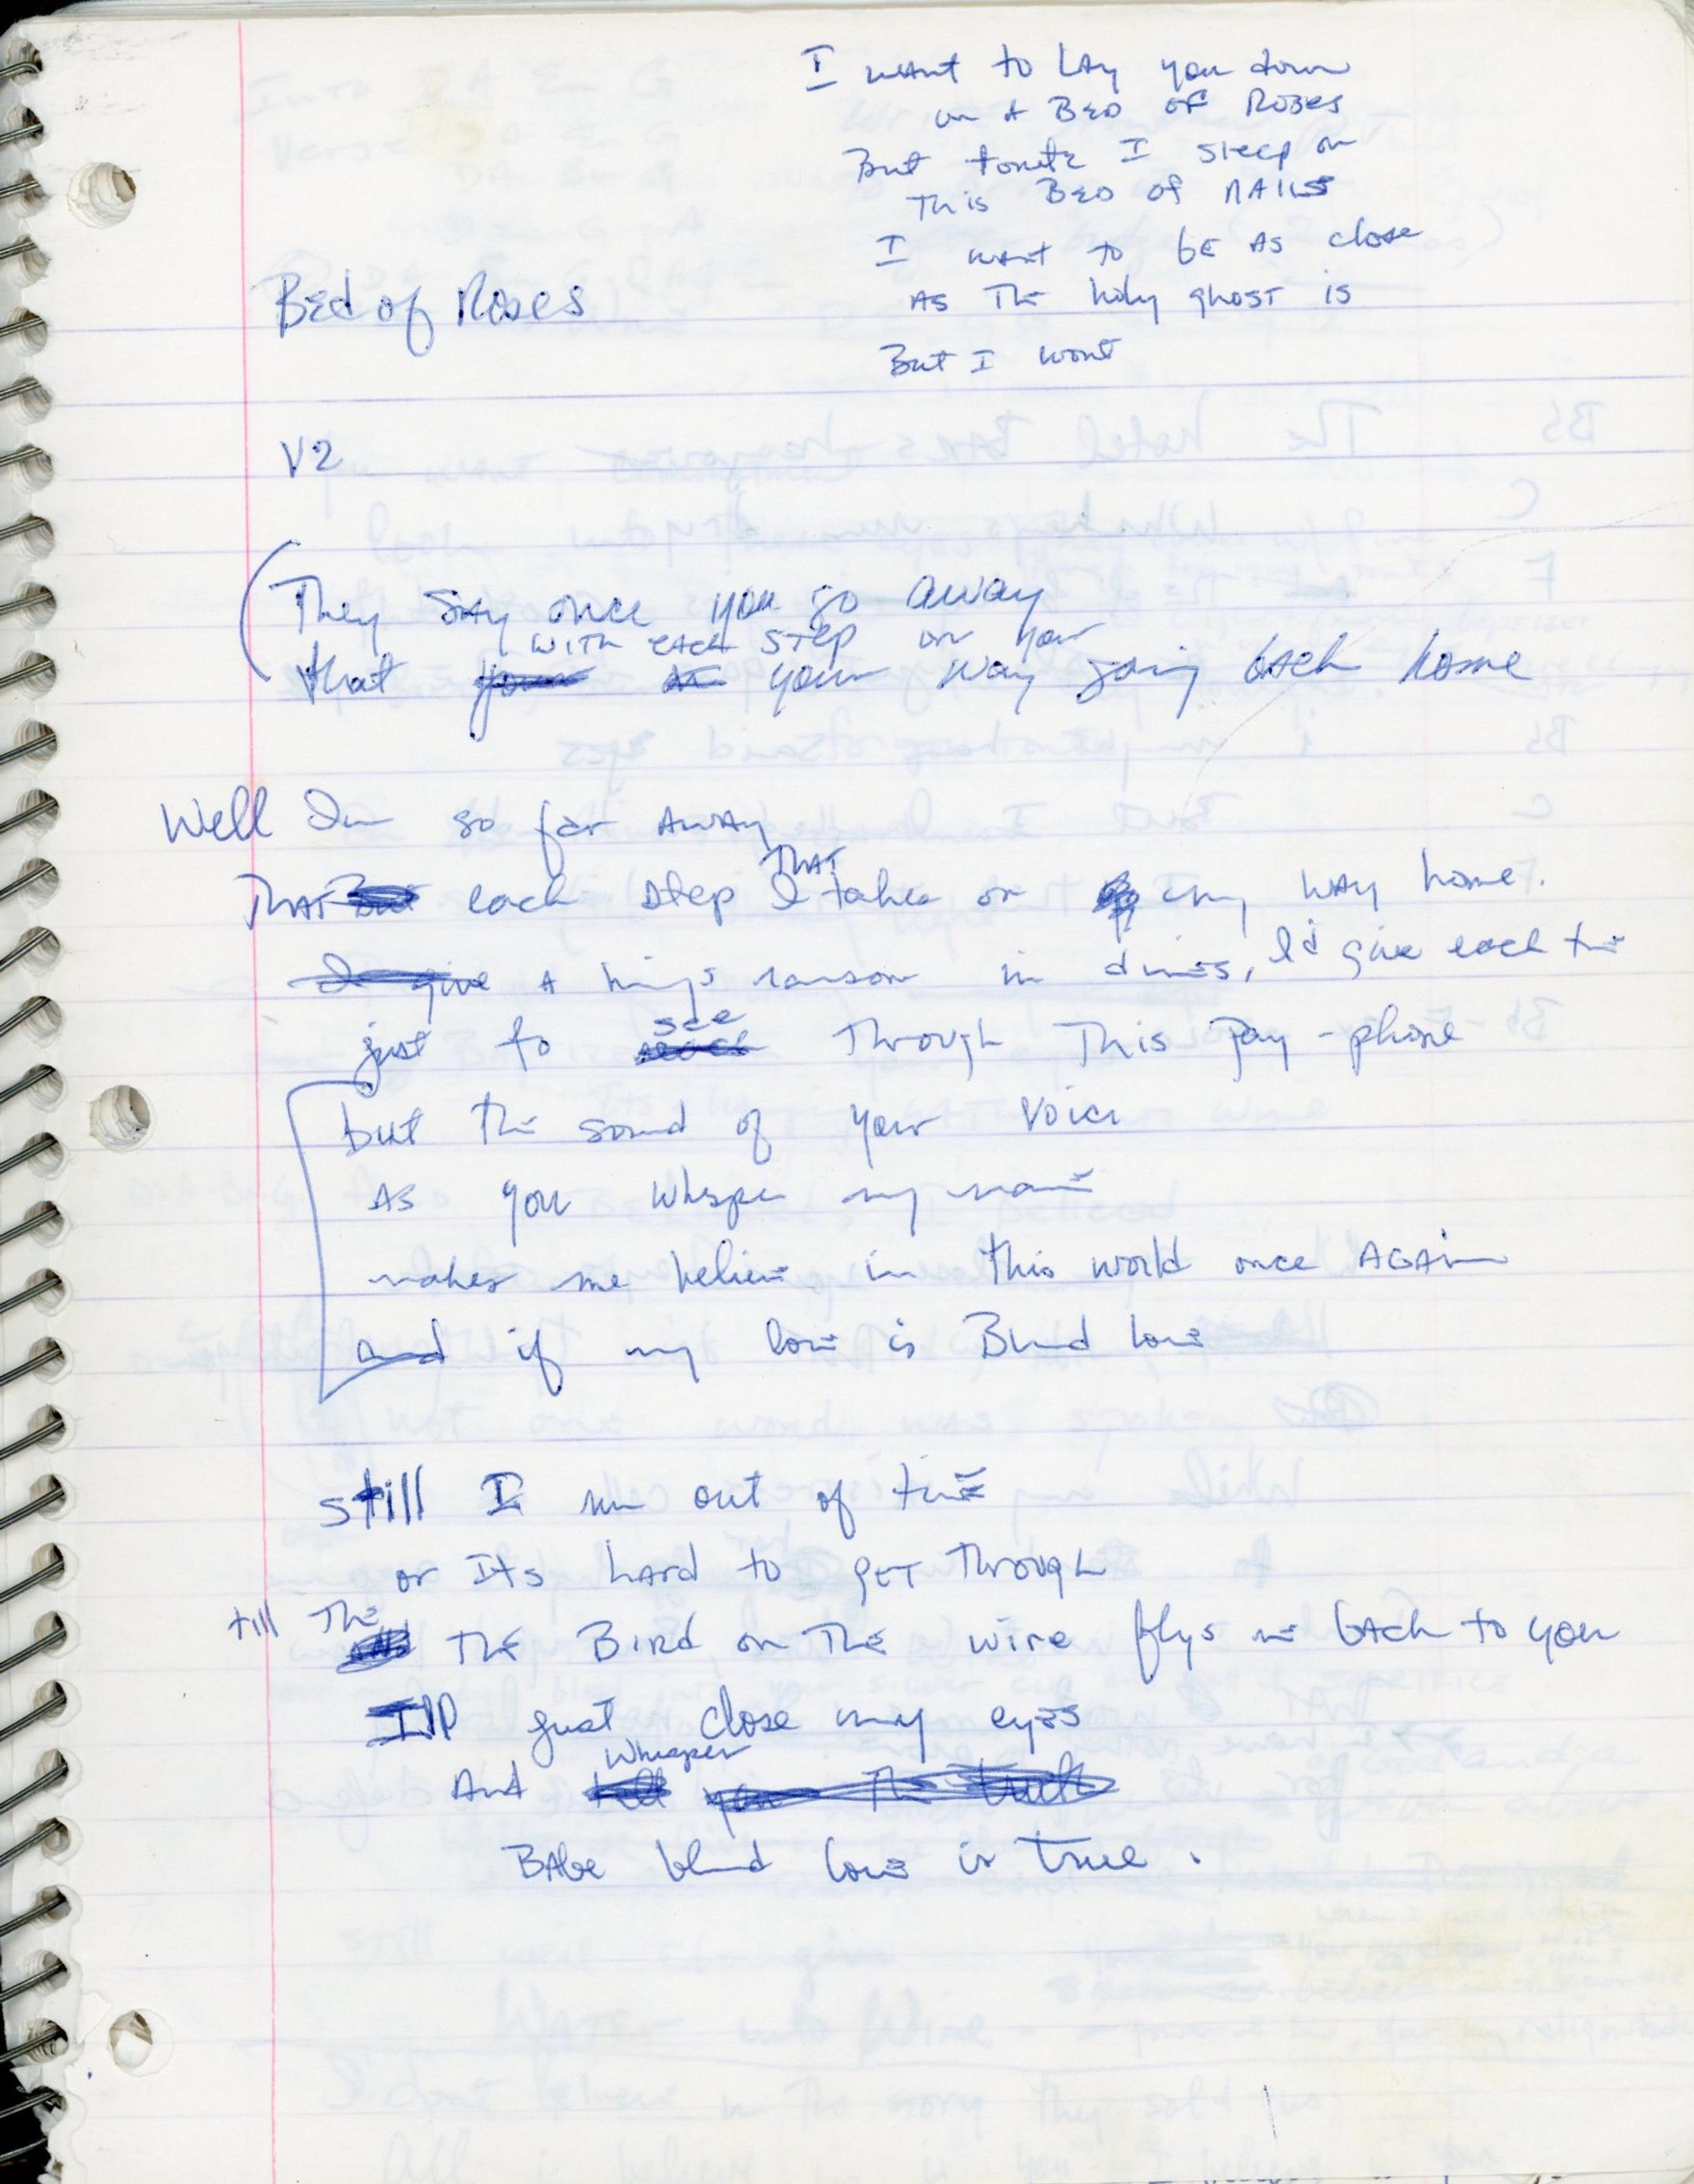 I want to LAy you down
on A BED OF ROSES
But tonite I sleep on
This BED of NAILS
I want to bE AS close
AS THE holy ghOST is
But I wont
Bed of Roses
V2
They SAy once you go away
WITH EACH STEP on your
that your way going bAck home
Well Im so far AWAy
THAT
THAT each step I takes on my WAy home.
I give A kings ransom in dimes, I'd give each time
see
just to reach Through This Pay-phone
but the sound of your Voice
AS you whisper my name
makes me believe in this world once AGAin
and if my love is Blind love
still I run out of time
or Its hARD to gET Through
till The
THE BIRD on THE wire flys me bAck to you
I'll just close my eyes
Whisper
And tell you The truth
BAbe blind love is true.